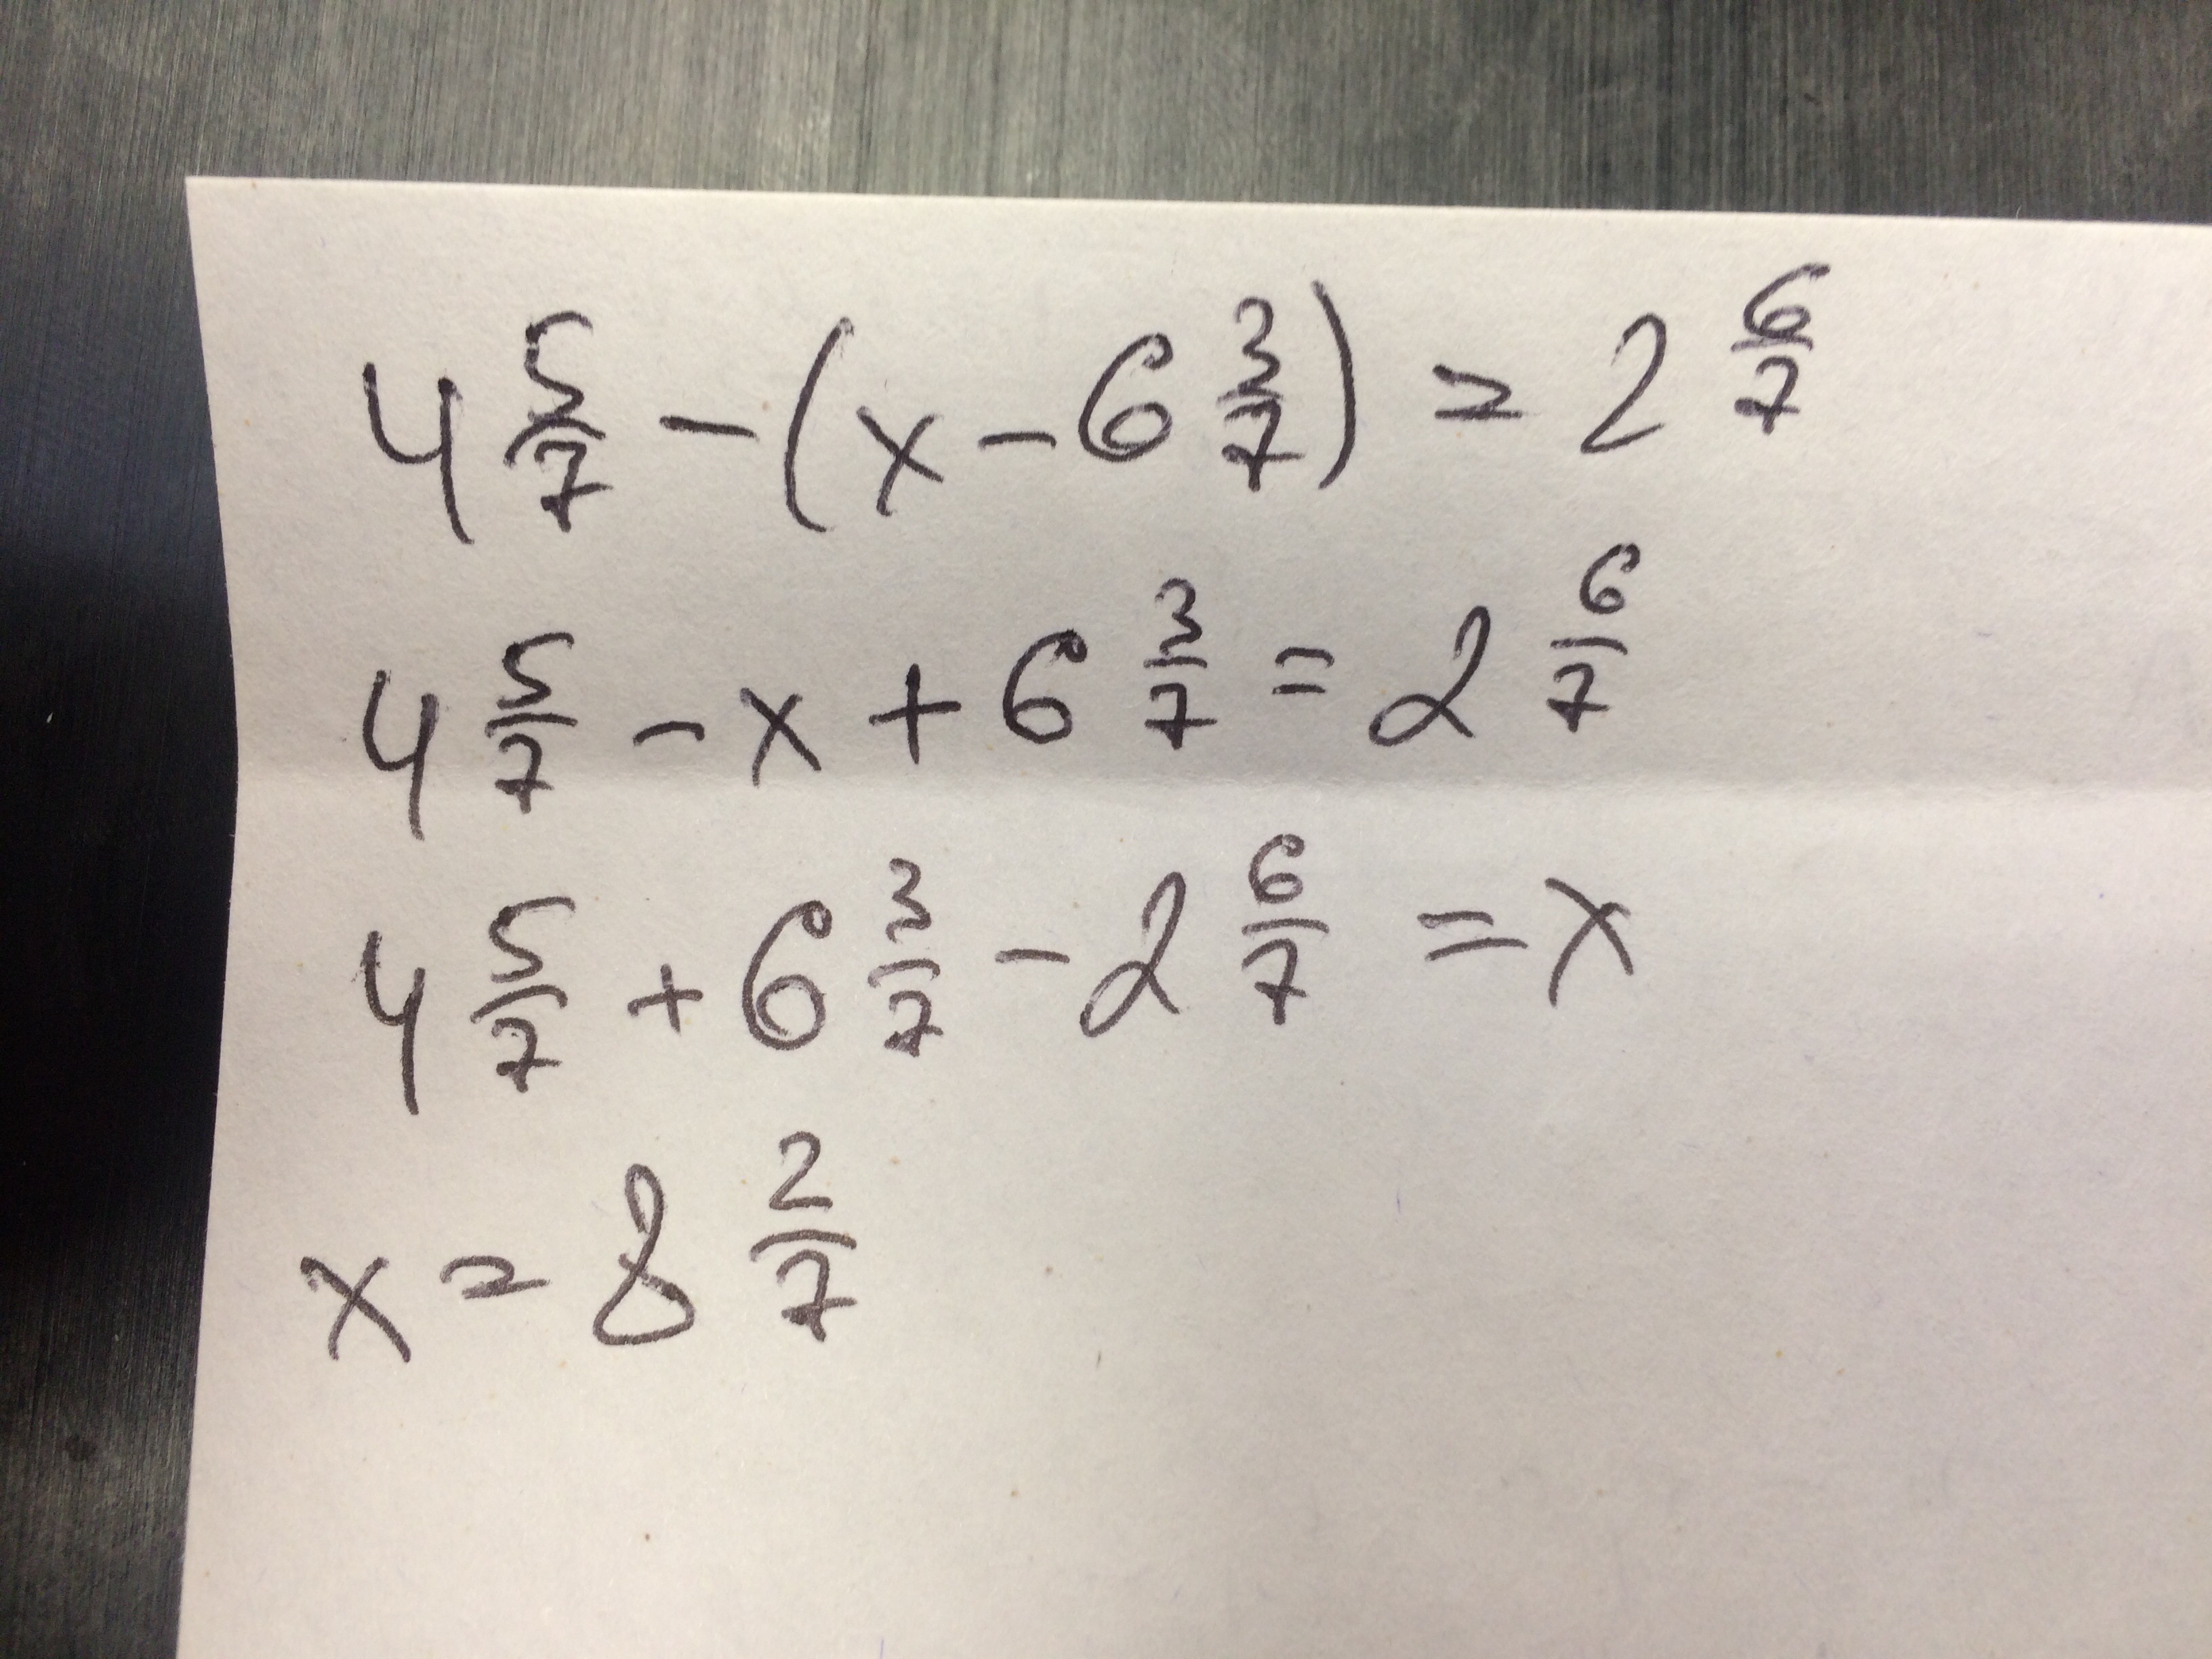 4 5/7 - (x - 6 3/7) = 2 6/7
4 5/7 - x + 6 3/7 = 2 6/7
4 5/7 + 6 3/7 - 2 6/7 = x
x = 8 2/7